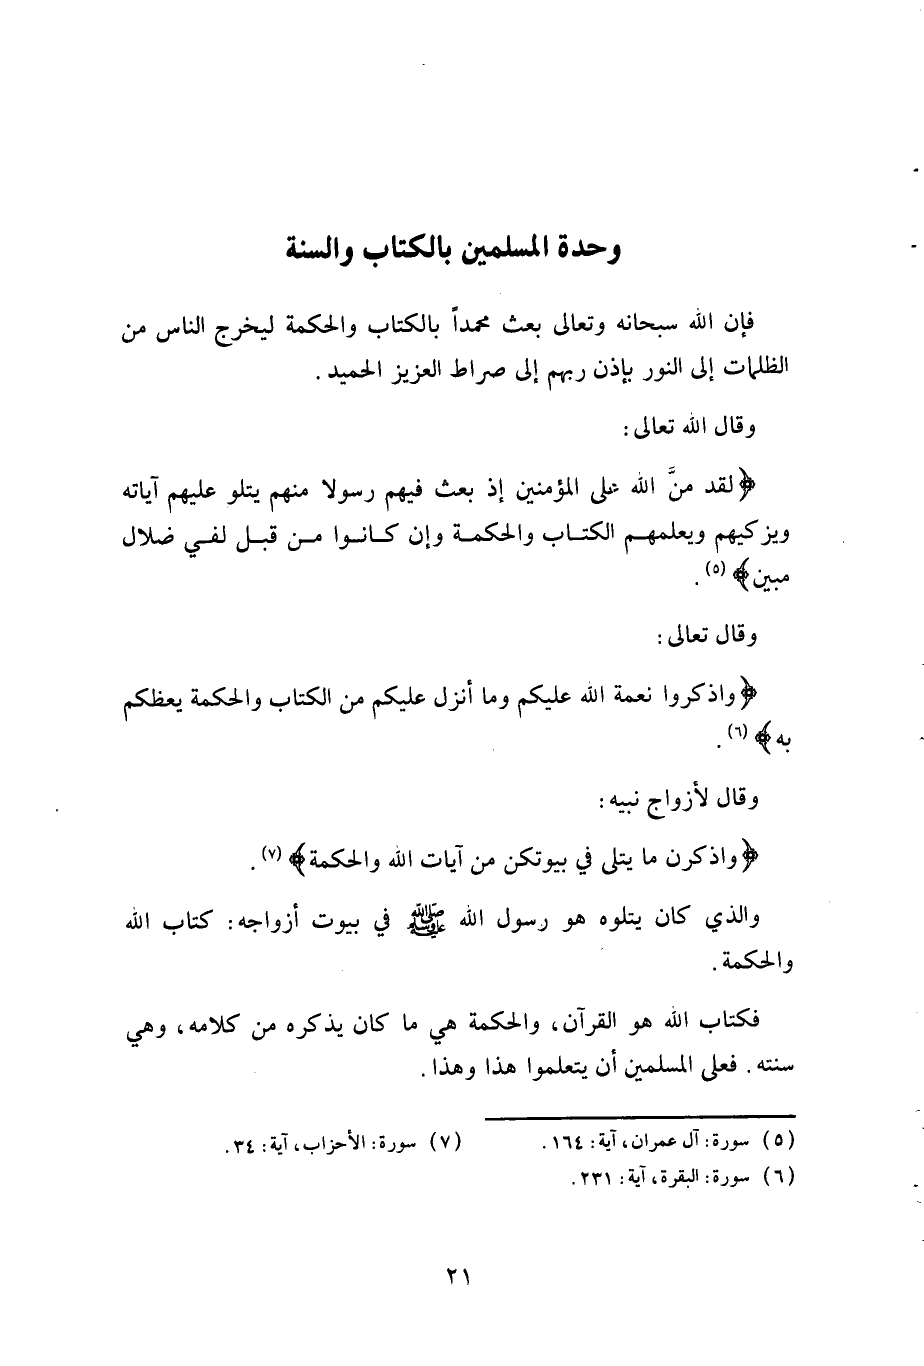 وحدة المسلمين بالكتاب والسنة
فإن الله سبحانه وتعالى بعث محمداً بالكتاب والحكمة ليخرج الناس من
الظلمات إلى النور بإذن ربهم إلى صراط العزيز الحميد .
وقال الله تعالى :
﴿لقد منَّ الله على المؤمنين إذ بعث فيهم رسولا منهم يتلو عليهم آياته
ويزكيهم ويعلمهم الكتاب والحكمة وإن كانوا من قبل لفي ضلال
مبين﴾ (٥) .
وقال تعالى :
﴿واذكروا نعمة الله عليكم وما أنزل عليكم من الكتاب والحكمة يعظكم
به﴾ (٦) .
وقال لأزواج نبيه :
﴿واذكرن ما يتلى في بيوتكن من آيات الله والحكمة﴾ (٧) .
والذي كان يتلوه هو رسول الله ﷺ في بيوت أزواجه : كتاب الله
والحكمة .
فكتاب الله هو القرآن ، والحكمة هي ما كان يذكره من كلامه ، وهي
سنته . فعلى المسلمين أن يتعلموا هذا وهذا .
(٥) سورة : آل عمران ، آية : ١٦٤ .
(٦) سورة : البقرة ، آية : ٢٣١ .
(٧) سورة : الأحزاب ، آية : ٣٤ .
٢١